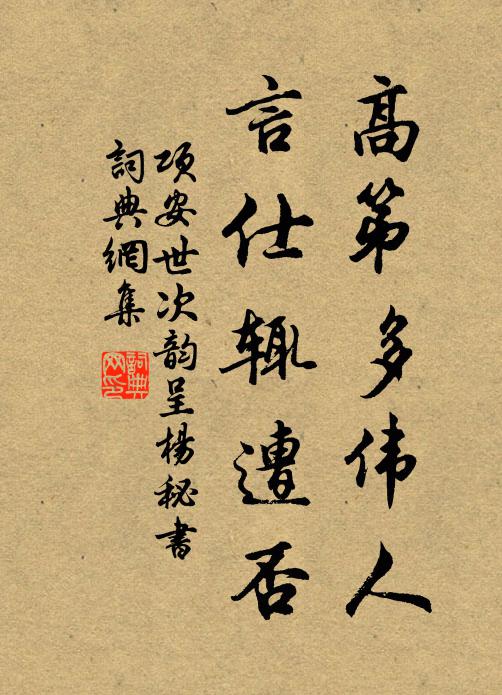 高第多伟人
言仕辄遭否
项安世次韵呈杨秘书
詞典網集
詞典网印